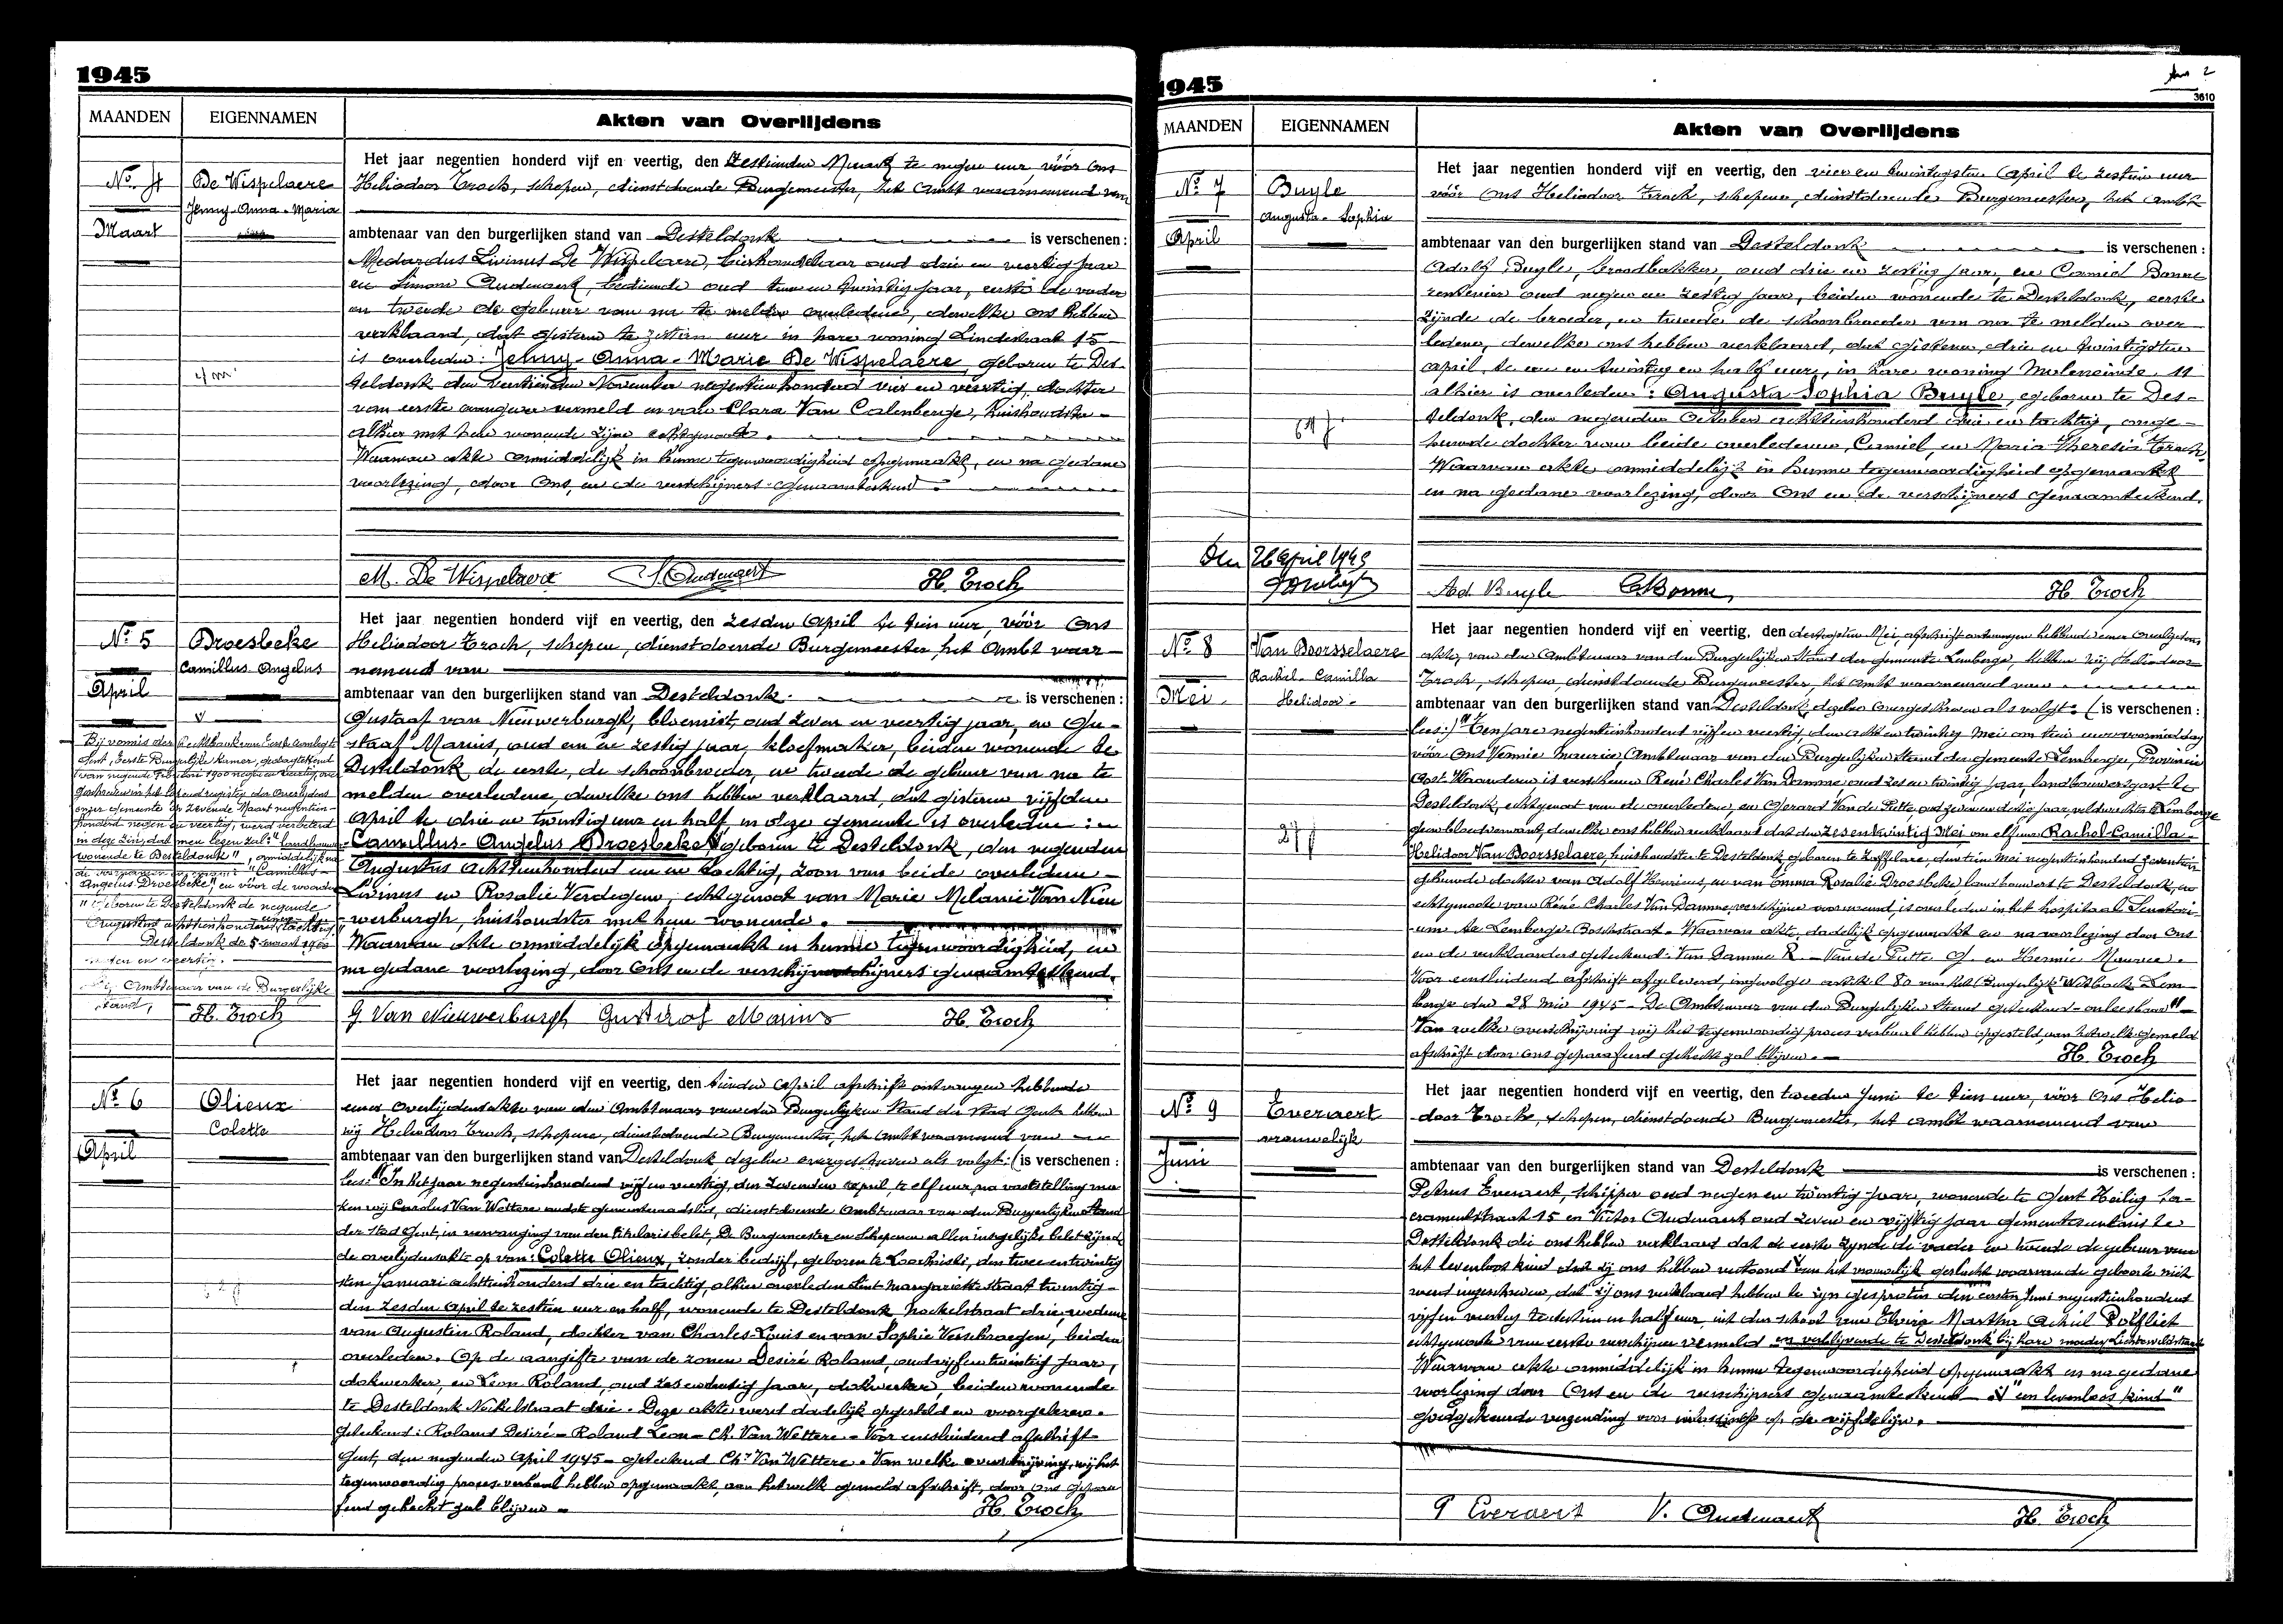 1945
MAANDEN
EIGENNAMEN
Akten van Overlijdens
No. 4
De Wispelaere
Jenny-Anna-Maria
Maart
Het jaar negentien honderd vijf en veertig, den zestienden Maart te negen uur, vóór Ons
Heliodoor Troch, schepen, dienstdoende Burgemeester, het Ambt waarnemend van
ambtenaar van den burgerlijken stand van Desteldonk is verschenen:
Medardus Livinus De Wispelaere, bierhandelaar oud drie en veertig jaar
en Simone Oudenaert, bediende oud twee en twintig jaar, eerste de vader
en tweede de gebuur van na te melden overledene, dewelke ons hebben
verklaard, dat gisteren te zestien uur in hare woning Lindestraat 15
is overleden: Jenny-Anna-Marie De Wispelaere, geboren te Des-
teldonk den veertienden November negentienhonderd vier en veertig, dochter
van eerste aangever vermeld en van Clara Van Calenberge, huishoudster
alhier met hem wonende zijne echtgenoote.
Waarvan akte onmiddelijk in hunne tegenwoordigheid opgemaakt, en na gedane
voorlezing, door Ons, en de verschijners genaamteekend.
M. De Wispelaere
H. Troch
No 5
Droesbeke
Camillus Angelus
April
Het jaar negentien honderd vijf en veertig, den zesden April te tien uur, vóór Ons
Heliodoor Troch, schepen, dienstdoende Burgemeester, het Ambt waar-
nemend van
ambtenaar van den burgerlijken stand van Desteldonk is verschenen:
Gustaaf van Nieuwerburgh, bloemist, oud zeven en veertig jaar, en Gu-
staaf Marius, oud een en zestig jaar, kloefmaker, beiden wonende te
Desteldonk de eerste, de schoonbroeder, en tweede de gebuur van na te
melden overledene, dewelke ons hebben verklaard, dat gisteren vijfden
April te drie en twintig uur en half in deze gemeente is overleden:
Camillus-Angelus Droesbeke geboren te Desteldonk, den negenden
Augustus achttienhonderd een en tachtig, zoon van beide overledenen
Livinus en Rosalie Verdegem, echtgenoot van Marie Melanie Van Nieu
werburgh, huishoudster met hem wonende.
Waarvan akte onmiddelijk opgemaakt in hunne tegenwoordigheid, en
na gedane voorlezing, door Ons en de verschijners genaamteekend.
Bij vonnis der Rechtbank van Eerste Aanleg te
Gent, Eerste Burgerlijke Kamer, gedagtekend
onzer gemeente op zevende Maart negentien-
honderd negen en veertig, werd verbeterd
in deze zin, dat men lezen zal: "landbouwer
wonende te Desteldonk", onmiddelijk na
Angelus Droesbeke" en vóór de woorden
"geboren te Desteldonk de negende
Augustus achttienhonderd een en tachtig."
Ambtenaar van de Burgerlijke
stand,
H. Troch
G. Van Nieuwerburgh Gustaaf Marius H. Troch
No 6
Olieux
Colette
April
Het jaar negentien honderd vijf en veertig, den tienden April afschrift ontvangen hebbende
eener Overlijdensakte van den Ambtenaar van den Burgerlijken Stand der stad Gent hebben
wij Heliodoor Troch, schepene, dienstdoende Burgemeester, het ambt waarnemend van
ambtenaar van den burgerlijken stand van Desteldonk dezelve overgeschreven als volgt: (is verschenen:
lees: "In het jaar negentienhonderd vijf en veertig, den zevenden April, te elf uur, na vaststelling ma-
ken wij Carolus Van Wettere oudste gemeenteraadslid, dienstdoende Ambtenaar van den Burgerlijken Stand
der stad Gent, in vervanging van den titularis belet, De Burgemeester en schepenen allen insgelijks belet zijnde
de overlijdensakte op van: Colette Olieux, zonder bedrijf, geboren te Loochristi, den twee en twintig
sten Januari achttienhonderd drie en tachtig, alhier overleden Sint Margarietestraat twintig
den zesden April te zestien uur en half, wonende te Desteldonk Nockelstraat drie, weduwe
van Augustin Roland, dochter van Charles-Louis en van Sophie Verschraegen, beiden
overleden. Op de aangifte van de zonen Desiré Roland, oud vijf en twintig jaar,
dokwerker, en Leon Roland, oud zes en dertig jaar, dokwerker, beiden wonende
te Desteldonk Nockelstraat drie. Deze akte werd dadelijk opgesteld en voorgelezen.
Geteekend: Roland Desiré - Roland Leon - Ch. Van Wettere. - Voor eensluidend afschrift
Gent, den negenden April 1945 - geteekend Chs Van Wettere. Van welke overschrijving, wij het
tegenwoordig proces-verbaal hebben opgemaakt, aan hetwelk gemeld afschrift, door ons gepara
feerd gehecht zal blijven.
H. Troch
1945
3610
MAANDEN
EIGENNAMEN
Akten van Overlijdens
No 7
Buyle
Augusta-Sophia
April
Het jaar negentien honderd vijf en veertig, den vier en twintigsten April te zestien uur
vóór Ons Heliodoor Troch, schepene, dienstdoende Burgemeester, het ambt
ambtenaar van den burgerlijken stand van Desteldonk is verschenen:
Adolf Buyle, broodbakker, oud drie en zestig jaar, en Camiel Bonne
rentenier oud negen en zestig jaar, beiden wonende te Desteldonk, eerste
zijnde de broeder, en tweede de schoonbroeder van na te melden over
ledene, dewelke ons hebben verklaard, dat gisteren, drie en twintigsten
april, te een en twintig en half uur, in hare woning Moleneinde, 11
alhier is overleden: Augusta-Sophia Buyle, geboren te Des-
teldonk, den negenden October achttienhonderd drie en tachtig, onge-
huwde dochter van beide overledenen, Camiel, en Maria Theresia Troch.
Waarvan akte onmiddelijk in hunne tegenwoordigheid opgemaakt
en na gedane voorlezing, door Ons en de verschijners genaamteekend.
Den 26 April 1945
Ad. Buyle C Bonne H. Troch
No 8
Van Boorsselaere
Rachel-Camilla
Helidoor.
Mei.
Het jaar negentien honderd vijf en veertig, den dertigsten Mei, afschrift ontvangen hebbende eener Overlijdens
akte, van den Ambtenaar van den Burgerlijken Stand der gemeente Lemberge, hebben wij Heliodoor
Troch, schepen, dienstdoende Burgemeester, het ambt waarnemend van
ambtenaar van den burgerlijken stand van Desteldonk dezelve overgeschreven als volgt: (is verschenen:
lees:) "Ten jare negentienhonderd vijf en veertig den acht en twintig Mei om tien uur voormiddag
vóór Ons Maurice, Ambtenaar van den Burgerlijken Stand der gemeente Lemberge, Provincie
Oost Vlaanderen is verschenen René Charles Van Damme, oud zes en twintig jaar, landbouwersgast te
Desteldonk, echtgenoot van de overledene, en Gerard Van de Putte, oud zeven en dertig jaar, veldwachter te Lemberge
geen bloedverwant, dewelke ons hebben verklaard dat den zesentwintig Mei, om elf uur Rachel-Camilla-
Helidoor Van Boorsselaere, huishoudster te Desteldonk, geboren te Zaffelare, den tien Mei negentienhonderd zeventien
gehuwde dochter van Adolf Henricus, en van Emma Rosalie Droesbeke landbouwers te Desteldonk, en
echtgenoote van René Charles Van Damme, verschijner voornoemd, is overleden in het hospitaal Sanatori-
um te Lemberge Bosstraat. Waarvan akte, dadelijk opgemaakt en na voorlezing door Ons
en de verklaarders geteekend: Van Damme R. - Van de Putte G. en Maurice.
Voor eensluidend afschrift afgeleverd, ingevolge artikel 80 van het Burgerlijk Wetboek. Lem
berge den 28 Mei 1945 - De Ambtenaar van den Burgerlijken Stand geteekend - onleesbaar" -
Van welke overschrijving wij het tegenwoordig proces verbaal hebben opgesteld, aan hetwelk gemeld
afschrift door ons geparafeerd gehecht zal blijven.
H. Troch
No 9
Everaert
vrouwelijk
Juni
Het jaar negentien honderd vijf en veertig, den tweeden Juni te tien uur, vóór Ons Helio
door Troch, schepen, dienstdoende Burgemeester, het ambt waarnemend van
ambtenaar van den burgerlijken stand van Desteldonk is verschenen:
Petrus Everaert, schipper oud negen en twintig jaar, wonende te Gent Heilig Sa-
cramentstraat 15 en Victor Oudenaert oud zeven en vijftig jaar gemeentesecretaris te
Desteldonk die ons hebben verklaard dat de eerste zijnde de vader en tweede de gebuur van
het levenloos kind dat zij ons hebben vertoond van het vrouwelijk geslacht waarvan de geboorte niet
werd ingeschreven, dat zij ons verklaard hebben te zijn gesproten den eersten Juni negentienhonderd
vijf en veertig te dertien en half uur, uit den schoot van Elvira Martha Achiel Rolfliet
echtgenoote van eerste verschijner vermeld en verblijvende te Desteldonk bij hare moeder
Waarvan akte onmiddelijk in hunne tegenwoordigheid opgemaakt en na gedane
voorlezing door Ons en de verschijners genaamteekend - "een levenloos kind"
goedgekeurde verzending op de vijfde lijn.
P Everaert V. Oudenaert H. Troch